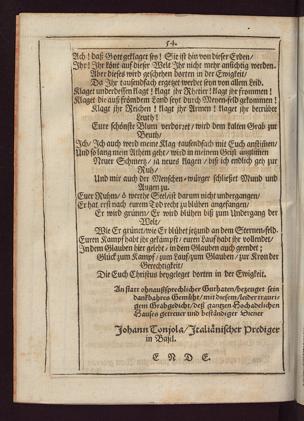 54.
Ach! daß Gott geklaget sey! Sie ist hin von dieser Erden/
Ihr! Ihr könt auf dieser Welt Ihr nicht mehr ansichtig werden.
Aber dieses wird geschehen dorten in der Ewigkeit/
Da Ihr tausendfach ergetzet werdet seyn von allem Leid.
Klaget underdessen klagt! klagt ihr Rhetier! klagt ihr frommen!
Klaget die auß frömdem Land seyt durch Meyen-feld gekommen!
Klagt ihr Reichen! klagt ihr Armen! klaget ihr betrübte
Leuth!
Eure schönste Blum verdorret/ wird dem kalten Grab zur
Beuth/
Ich/ Ich auch werd meine Klag tausendfach mit Euch anstifften/
Und so lang mein Athem geht/ wird in meinem Geist
Neuer Schmertz/ ja neues klagen/ biß ich endlich geh zur
Ruh/
Und mir auch der Menschen-würger schliesset Mund und
Augen zu.
Euer Ruhm/ ô werthe Seel/ ist darum nicht undergangen/
Er hat erst nach eurem Tod recht zu blühen angefangen/
Er wird grünen/ Er wird blühen biß zum Undergang der
Welt/
Wie Er grünet/ wie Er blühet jetzund an dem Sternen-feld.
Euren Kampf habt ihr gekämpft/ euren Lauf habt ihr vollendet/
In dem Glauben hier gelebt/ in dem Glauben auch geendet;
Glück zum Kampf/ zum Lauf/ zum Glauben/ zur Kron der
Gerechtigkeit/
Die Euch Christus beygeleget dorten in der Ewigkeit.
An statt ohnaußsprechlicher Guthaten/ bezeuget sein
danckbahres Gemüht/ mit diesem/ leider trauri-
gem Grabgedicht/ deß gantzen
Hauses getreuer und beständiger Diener
Johann Tonjola/ Italiänischer Prediger
in Basel.
E N D E.